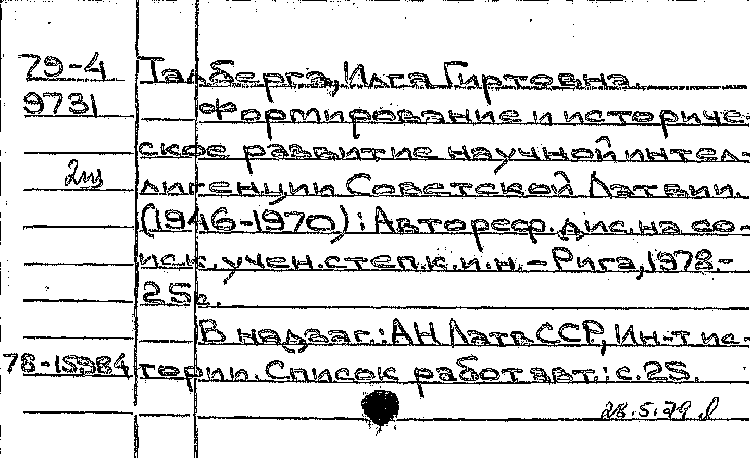 79-4 Талберга, Илга Гиртовна.
9731 Формирование и историче-
ское развитие научной интел-
2из лигенции Советской Латвии.
(1946-1970): Автореф. дис. на со-
иск. учен. степ. к. и. н. - Рига, 1978. -
25с.
В надзаг.: АН Латв ССР, Ин-т ис-
78-15984 тории. Список работ авт.: с. 25.
28.5.79